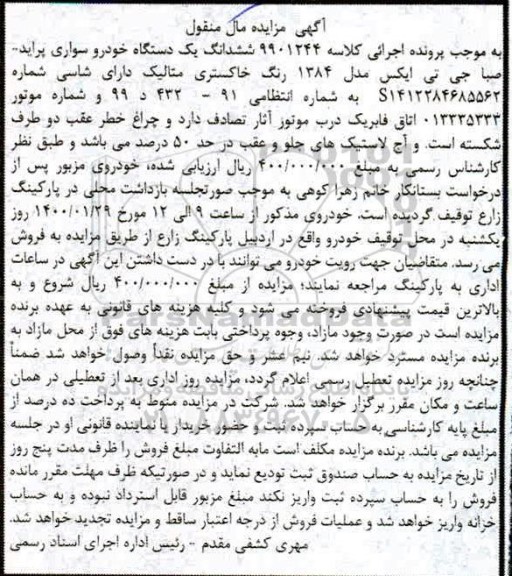 آگهی مزایده مال منقول
به موجب پرونده اجرائی کلاسه ۹۹۰۱۲۴۴ ششدانگ یک دستگاه خودرو سواری پراید-
صبا جی تی ایکس مدل ۱۳۸۴ رنگ خاکستری متالیک دارای شاسی شماره
S۱۴۱۲۲۸۴۶۸۵۵۶۲ به شماره انتظامی ۹۱ - ۴۳۲ د ۹۹ و شماره موتور
۰۱۳۳۳۵۳۳۳ اتاق فابریک درب موتوز آثار تصادف دارد و چراغ خطر عقب دو طرف
شکسته است. و آج لاستیک های جلو و عقب در حد ۵۰ درصد می باشد و طبق نظر
کارشناس رسمی به مبلغ ۴۰۰/۰۰۰/۰۰۰ ریال ارزیابی شده، خودروی مزبور پس از
درخواست بستانکار خانم زهرا کوهی به موجب صورتجلسه بازداشت محلی در پارکینگ
زارع توقیف گردیده است. خودروی مذکور از ساعت ۹ الی ۱۲ مورخ ۱۴۰۰/۰۱/۲۹ روز
یکشنبه در محل توقیف خودرو واقع در اردبیل پارکینگ زارع از طریق مزایده به فروش
می رسد. متقاضیان جهت رویت خودرو می توانند با در دست داشتن این آگهی در ساعات
اداری به پارکینگ مراجعه نمایند؛ مزایده از مبلغ ۴۰۰/۰۰۰/۰۰۰ ریال شروع و به
بالاترین قیمت پیشنهادی فروخته می شود و کلیه هزینه های قانونی به عهده برنده
مزایده است در صورت وجود مازاد، وجوه پرداختی بابت هزینه های فوق از محل مازاد به
برنده مزایده مسترد خواهد شد. نیم عشر و حق مزایده نقداً وصول خواهد شد ضمناً
چنانچه روز مزایده تعطیل رسمی اعلام گردد، مزایده روز اداری بعد از تعطیلی در همان
ساعت و مکان مقرر برگزار خواهد شد. شرکت در مزایده منوط به پرداخت ده درصد از
مبلغ پایه کارشناسی به حساب سپرده ثبت و حضور خریدار یا نماینده قانونی او در جلسه
مزایده می باشد. برنده مزایده مکلف است مابه التفاوت مبلغ فروش را ظرف مدت پنج روز
از تاریخ مزایده به حساب صندوق ثبت تودیع نماید و در صورتیکه ظرف مهلت مقرر مانده
فروش را به حساب سپرده ثبت واریز نکند مبلغ مزبور قابل استرداد نبوده و به حساب
خزانه واریز خواهد شد و عملیات فروش از درجه اعتبار ساقط و مزایده تجدید خواهد شد.
مهری کشفی مقدم - رئیس اداره اجرای اسناد رسمی